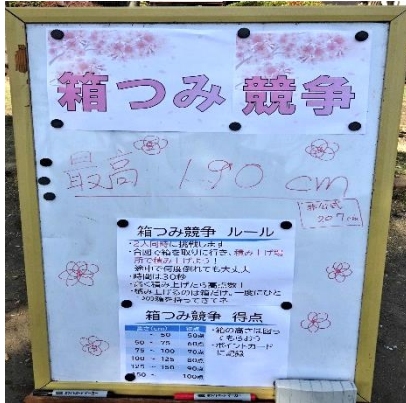 箱つみ競争
最高 190cm
非公式
207cm
箱つみ競争 ルール
・2人同時に挑戦します
・合図で箱を取りに行き、積み上げ場
所で積み上げよう!
途中で何度倒れても大丈夫
・時間は30秒
・高く積み上げたら高点数!
・積み上げるのは箱だけ。一度にひと
つの箱を持ってきてネ
箱つみ競争 得点
高さ(cm) 得点
~ 50 50点
50 ~ 75 60点
75 ~ 100 70点
100 ~ 125 80点
125 ~ 150 90点
150 ~ 100点
・箱の高さは図っ
てもらおう
・ポイントカード
に記録